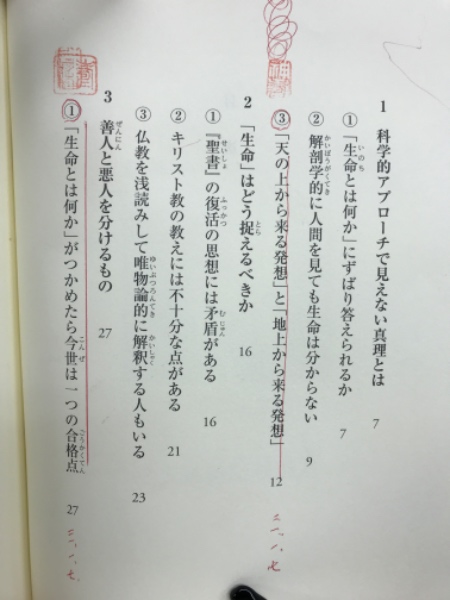 1 科学的アプローチで見えない真理とは 7
①「生命とは何か」にずばり答えられるか 7
②解剖学的に人間を見ても生命は分からない 9
③「天の上から来る発想」と「地上から来る発想」 12
2 「生命」はどう捉えるべきか 16
①『聖書』の復活の思想には矛盾がある 16
②キリスト教の教えには不十分な点がある 21
③仏教を浅読みして唯物論的に解釈する人もいる 23
3 善人と悪人を分けるもの 27
①「生命とは何か」がつかめたら今世は一つの合格点 27